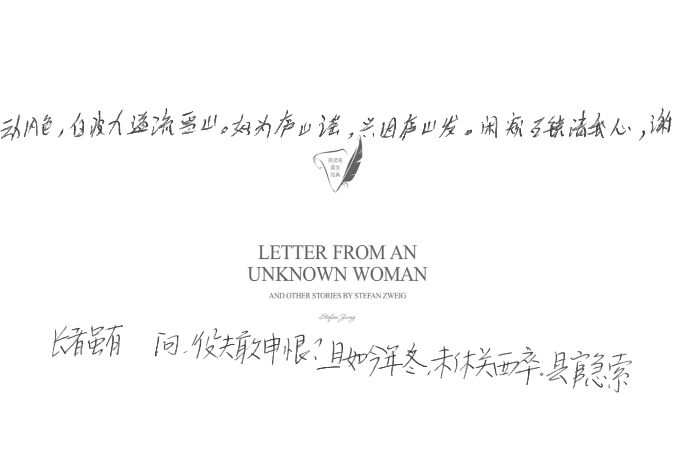 动风色，白波九道流雪山。好为庐山谣，兴因庐山发。闲窥石镜清我心，谢
LETTER FROM AN
UNKNOWN WOMAN
AND OTHER STORIES BY STEFAN ZWEIG
Stefan Zweig
长者虽有 问，役夫敢申恨？且如今年冬，未休关西卒。县官急索